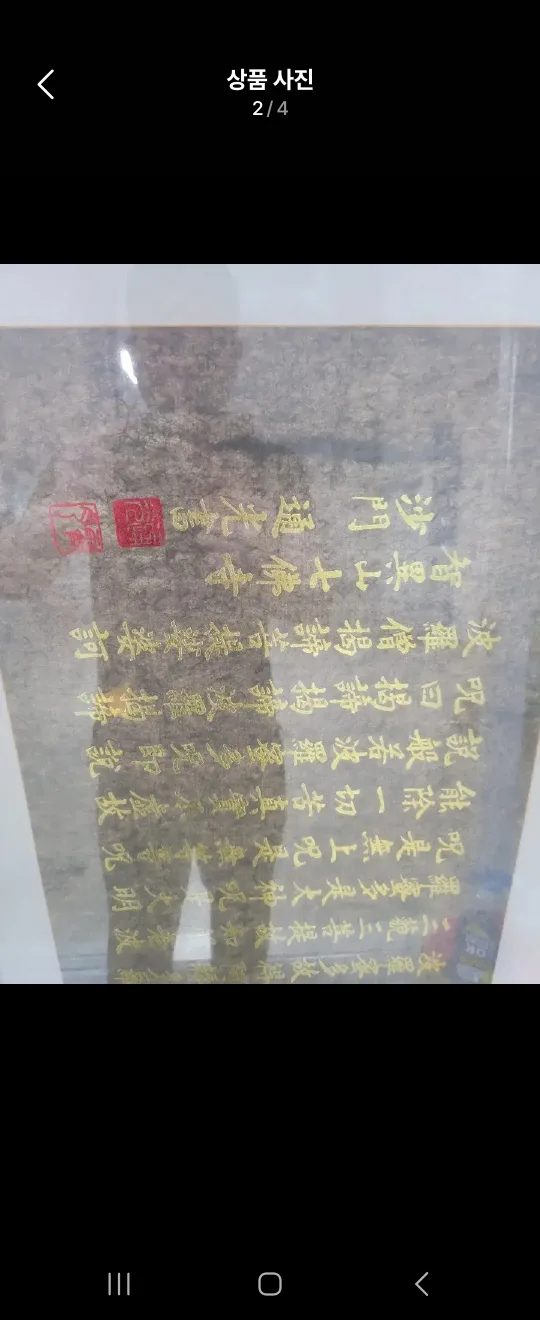 상품 사진
2 / 4
波羅蜜多故得阿耨多羅
三藐三菩提故知般若波
羅蜜多是大神呪是大明
呪是無上呪是無等等呪
能除一切苦真實不虛故
說般若波羅蜜多呪即說
呪曰揭諦揭諦波羅揭諦
波羅僧揭諦菩提娑婆訶
智異山七佛
沙門 通光書